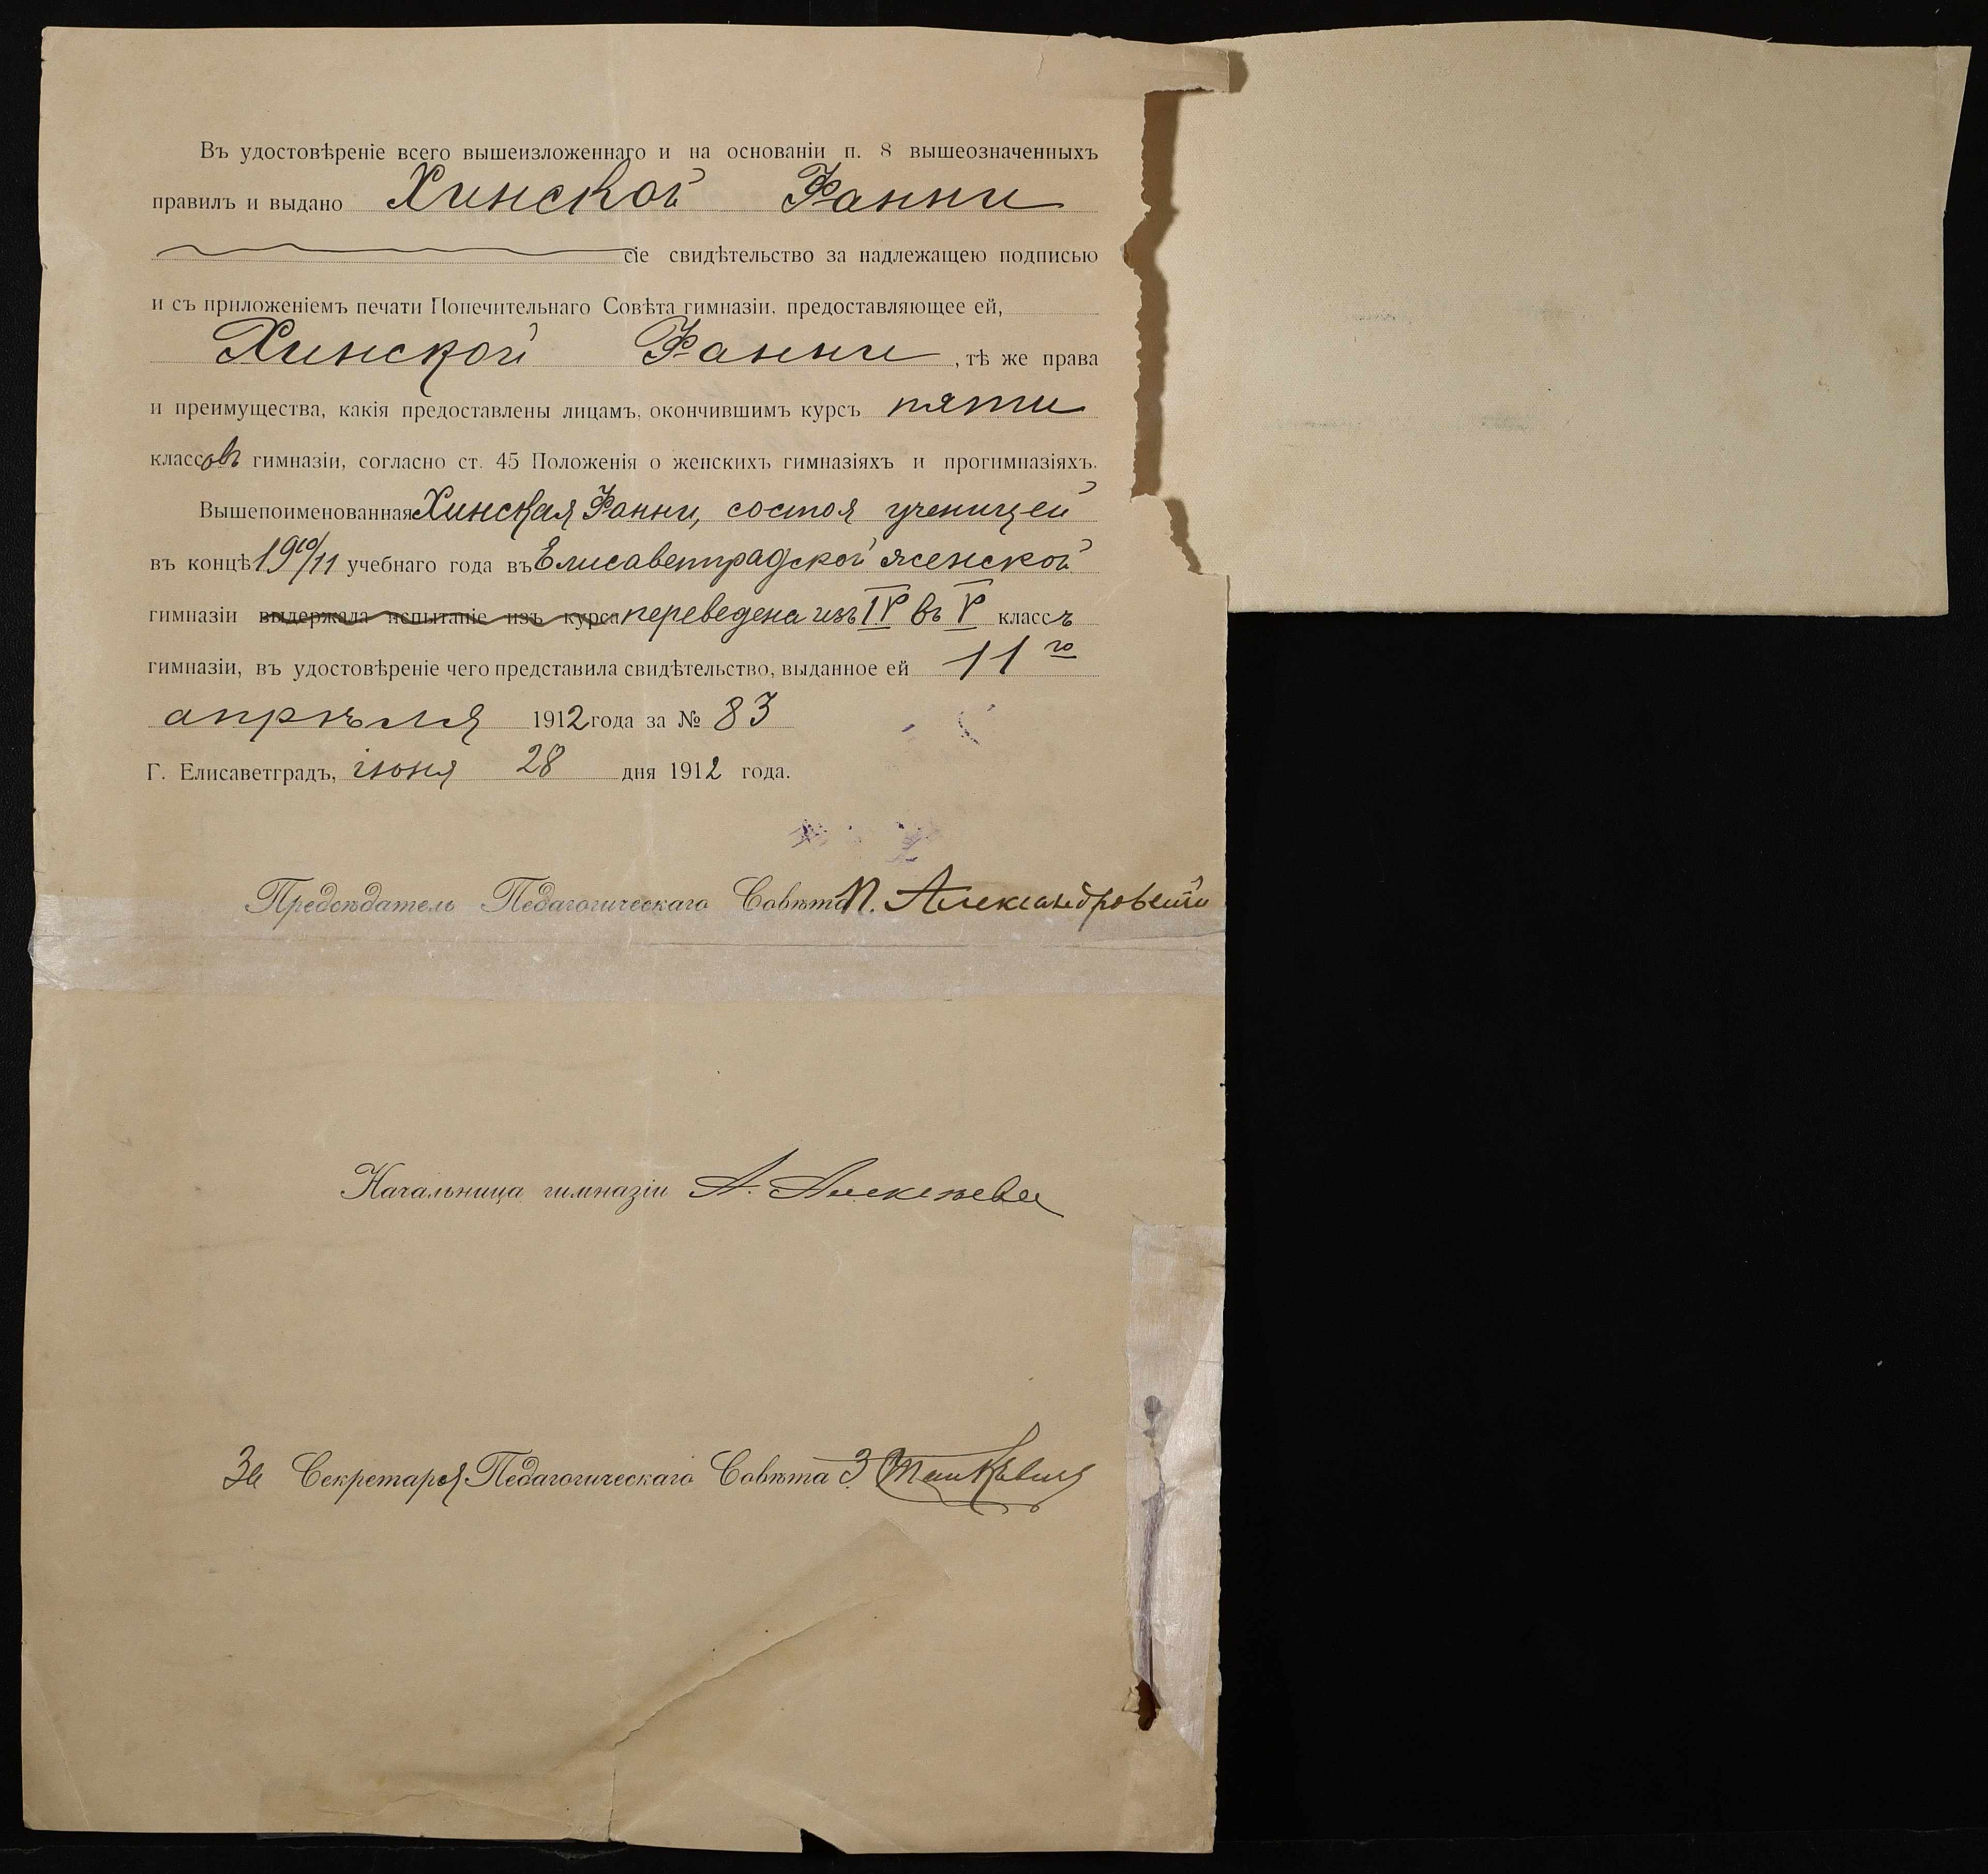 Въ удостовѣреніе всего вышеизложеннаго и на основаніи п. 8 вышеозначенныхъ
правилъ и выдано Хинской Фанни
сіе свидѣтельство за надлежащею подписью
и съ приложеніемъ печати Попечительнаго Совѣта гимназіи, предоставляющее ей,
Хинской Фанни, тѣ же права
и преимущества, какія предоставлены лицамъ, окончившимъ курсъ пяти
классовъ гимназіи, согласно ст. 45 Положенія о женскихъ гимназіяхъ и прогимназіяхъ.
Вышепоименованная Хинская Фанни, состоя ученицей
въ концѣ 1910/11 учебнаго года въ Елисаветградской женской
гимназіи выдержала испытаніе изъ курса переведена изъ IV въ V классъ
гимназіи, въ удостовѣреніе чего представила свидѣтельство, выданное ей 11го
апрѣля 1912 года за № 83
Г. Елисаветградъ, іюня 28 дня 1912 года.
Предсѣдатель Педагогическаго Совѣта П. Александровскій
Начальница гимназіи А. Алексѣева
За Секретаря Педагогическаго Совѣта З.